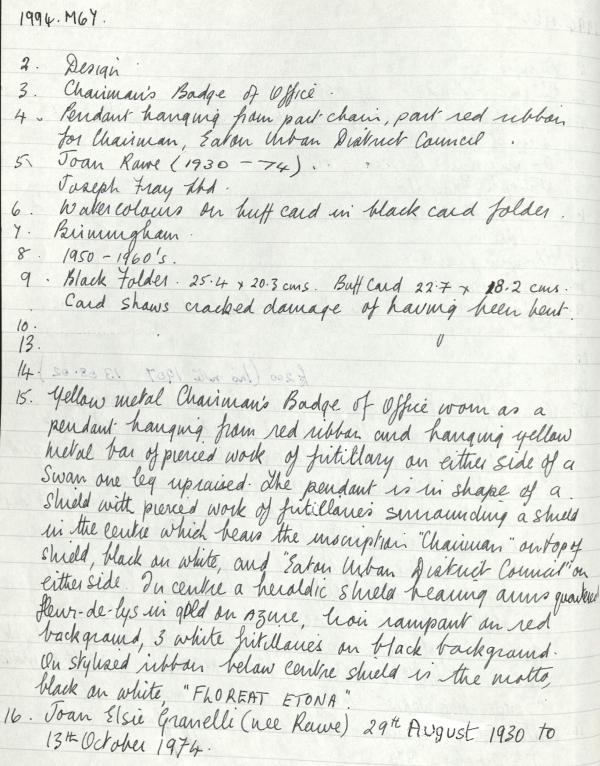 1994.M64.
2. Design.
3. Chairman's Badge of Office.
4. Pendant hanging from part chain, part red ribbon
for Chairman, Eaton Urban District Council.
5. Joan Rawe (1930 - 74).
Joseph Fray Ltd.
6. Watercolours on buff card in black card folder.
7. Birmingham.
8. 1950 - 1960's.
9. Black Folder. 25.4 x 20.3 cms. Buff Card 22.7 x 18.2 cms.
Card shows cracked damage of having been bent.
10.
13.
14.
15. Yellow metal Chairman's Badge of Office worn as a
pendant hanging from red ribbon and hanging yellow
metal bar of pierced work of fritillary on either side of a
Swan one leg upraised. The pendant is in shape of a
shield with pierced work of fritillaries surrounding a shield
in the centre which bears the inscription "Chairman" on top of
shield, black on white, and "Eaton Urban District Council" on
either side. In centre a heraldic shield bearing arms quartered
fleur-de-lys in gold on Azure, lion rampant on red
background, 3 white fritillaries on black background.
On stylised ribbon below centre shield is the motto,
black on white, "FLOREAT ETONA".
16. Joan Elsie Granelli (nee Rawe) 29th August 1930 to
13th October 1974.